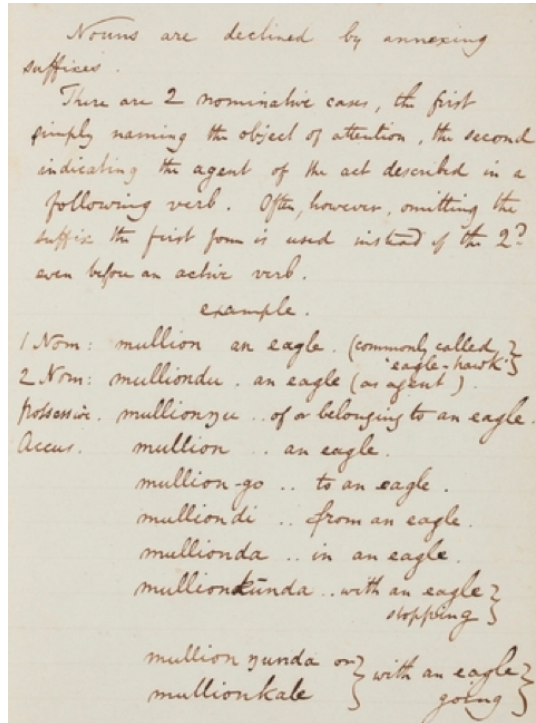 Nouns are declined by annexing
suffixes.
There are 2 nominative cases, the first
simply naming the object of attention, the second
indicating the agent of the act described in a
following verb. Often, however, omitting the
suffix the first form is used instead of the 2?
even before an active verb.
example.
1 Nom: mullion an eagle. (commonly called
'eagle-hawk')
2 Nom: mulliondu. an eagle (as agent)
Possessive. mullionŋu .. of or belonging to an eagle.
Accus. mullion .. an eagle.
mullion-go .. to an eagle.
mulliondi .. from an eagle.
mullionda .. in an eagle.
mullionkūnda .. with an eagle
stopping
mullion ŋunda or with an eagle
mullionkale going